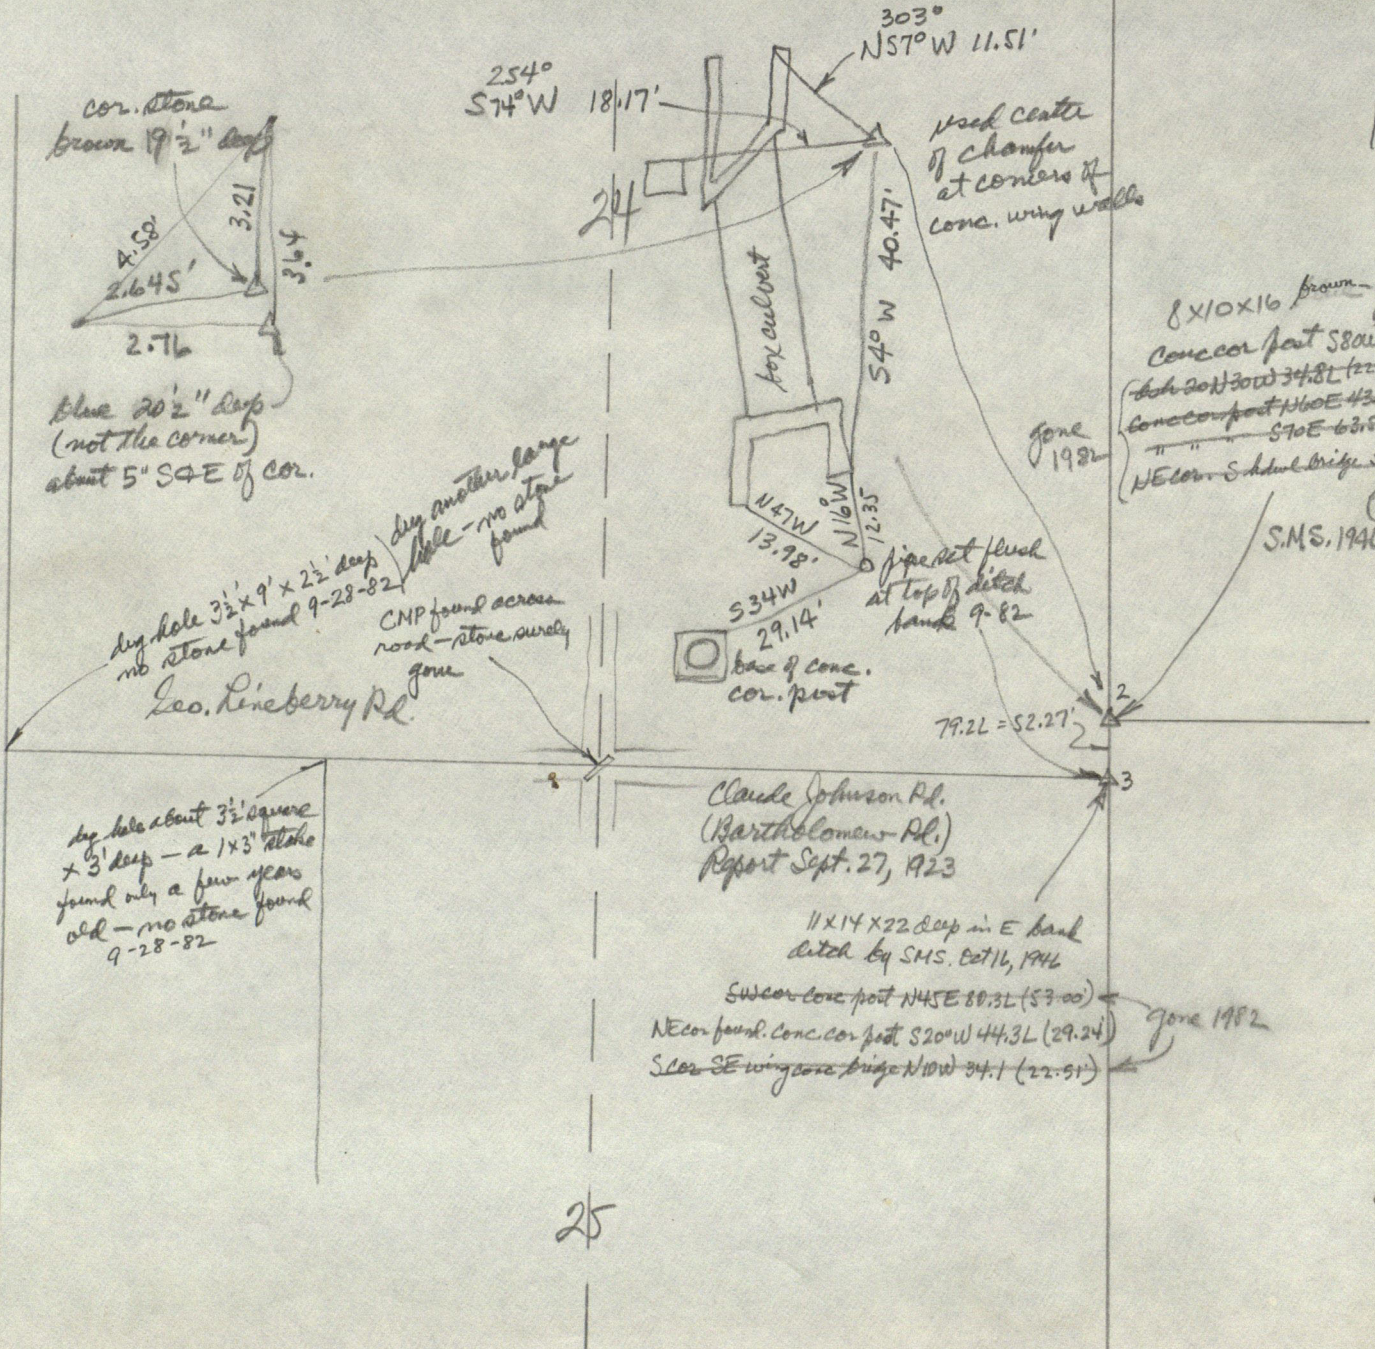 303°
N57°W 11.51'
254°
S74°W 18.17'
cor. stone
brown 19½" deep
3.21
3.64
4.58'
2.645'
2.76
blue 20½" deep
(not the corner)
about 5" S&E of cor.
used center
of chamfer
at corners of
conc. wing walls
24
box culvert
S4°W 40.47'
8X10X16 brown
conc cor post S80W
N30W 34.8L (22
conc cor post N60E 43
" " " S70E 63.5
NE cor. S hdwl bridge
gone
1982
S.M.S. 1946
N47W
13.98'
N16°W
12.35
pipe set flush
at top of ditch
bank 9-82
S34W
29.14'
base of conc.
cor. post
dug another large
hole - no stone
found
dug hole 3½' x 9' x 2½' deep
no stone found 9-28-82
CMP found across
road - stone surely
gone
Geo. Lineberry Rd.
2
79.2L = 52.27'
3
Claude Johnson Rd.
(Bartholomew Rd.)
Report Sept. 27, 1923
dug hole about 3½' square
x 3' deep - a 1x3" stake
found only a few years
old - no stone found
9-28-82
11X14X22 deep in E bank
ditch by SMS. Oct 16, 1946
SW cor conc post N45E 80.3L (53.00')
NE cor found. conc. cor post S20°W 44.3L (29.24')
S cor SE wing conc bridge N10W 34.1 (22.51')
gone 1982
25